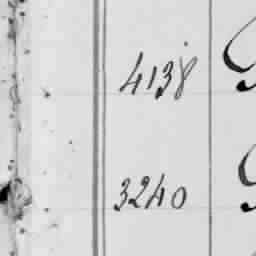 4138
3240